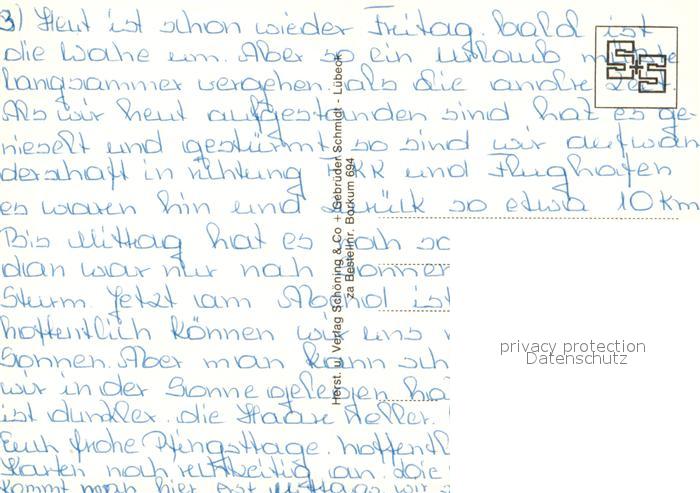 3) Heut ist schon wieder Freitag. bald ist
die Wohe um. Aber so ein Urlaub müsste
langsammer vergehen. als die andre Zeit.
Als wir heut aufgestanden sind hat es ge-
nieselt und gestürmt so sind wir auf wan
derschaft in richtung FKK und Flughafen
es waren hin und zurück so etwa 10 km
Bis Mittag hat es noch
dan war nur noch
Sturm. Jetzt am ist
hoffentlich können wir uns
Sonnen. Aber man kann
wir in der Sonne gelegen
ist dunkler. die Haare heller.
Euch frohe Pfingsttage.
Karten noch rechtzeitig an. die
kommt man hier erst Mittags wir
Herst. u. Verlag Schöning & Co + Gebrüder Schmidt - Lübeck
za Bestellnr. Borkum 694
privacy protection
Datenschutz